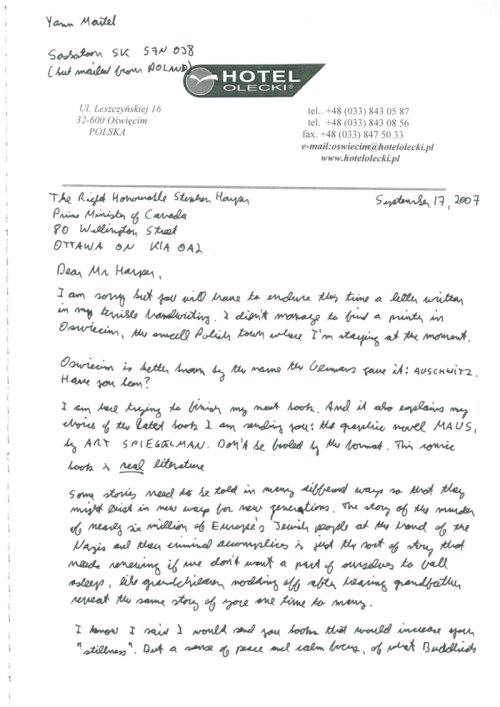 Yann Martel
Saskatoon SK S7N 0J8
(but mailed from POLAND)
HOTEL
OLECKI®
Ul. Leszczyńskiej 16
32-600 Oświęcim
POLSKA
tel.. +48 (033) 843 05 87
tel. +48 (033) 843 08 56
fax. +48 (033) 847 50 33
e-mail:oswiecim@hotelolecki.pl
www.hotelolecki.pl
The Right Honourable Stephen Harper
September 17, 2007
Prime Minister of Canada
80 Wellington Street
OTTAWA ON K1A 0A2
Dear Mr Harper,
I am sorry but you will have to endure this time a letter written
in my terrible handwriting. I didn't manage to find a printer in
Oswiecim, the small Polish town where I'm staying at the moment.
Oswiecim is better known by the name the Germans gave it: AUSCHWITZ.
Have you been?
I am here trying to finish my next book. And it also explains my
choice of the latest book I am sending you: the graphic novel MAUS,
by ART SPIEGELMAN. Don't be fooled by the format. This comic
book is real literature
Some stories need to be told in many different ways so that they
might exist in new ways for new generations. The story of the murder
of nearly six million of Europe's Jewish people at the hand of the
Nazis and their criminal accomplices is just the sort of story that
needs renewing if we don't want a part of ourselves to fall
asleep, like grandchildren nodding off after hearing grandfather
repeat the same story of yore one time too many.
I know I said I would send you books that would increase your
"stillness". But a sense of peace and calm focus, of what Buddhists